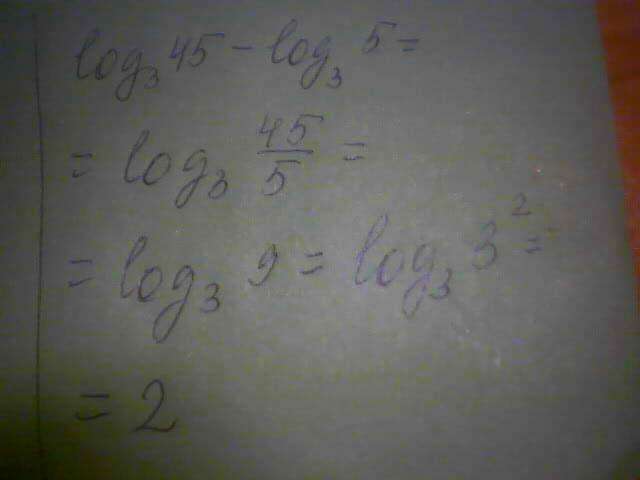 log₃ 45 - log₃ 5 =
= log₃ 45/5 =
= log₃ 9 = log₃ 3² =
= 2